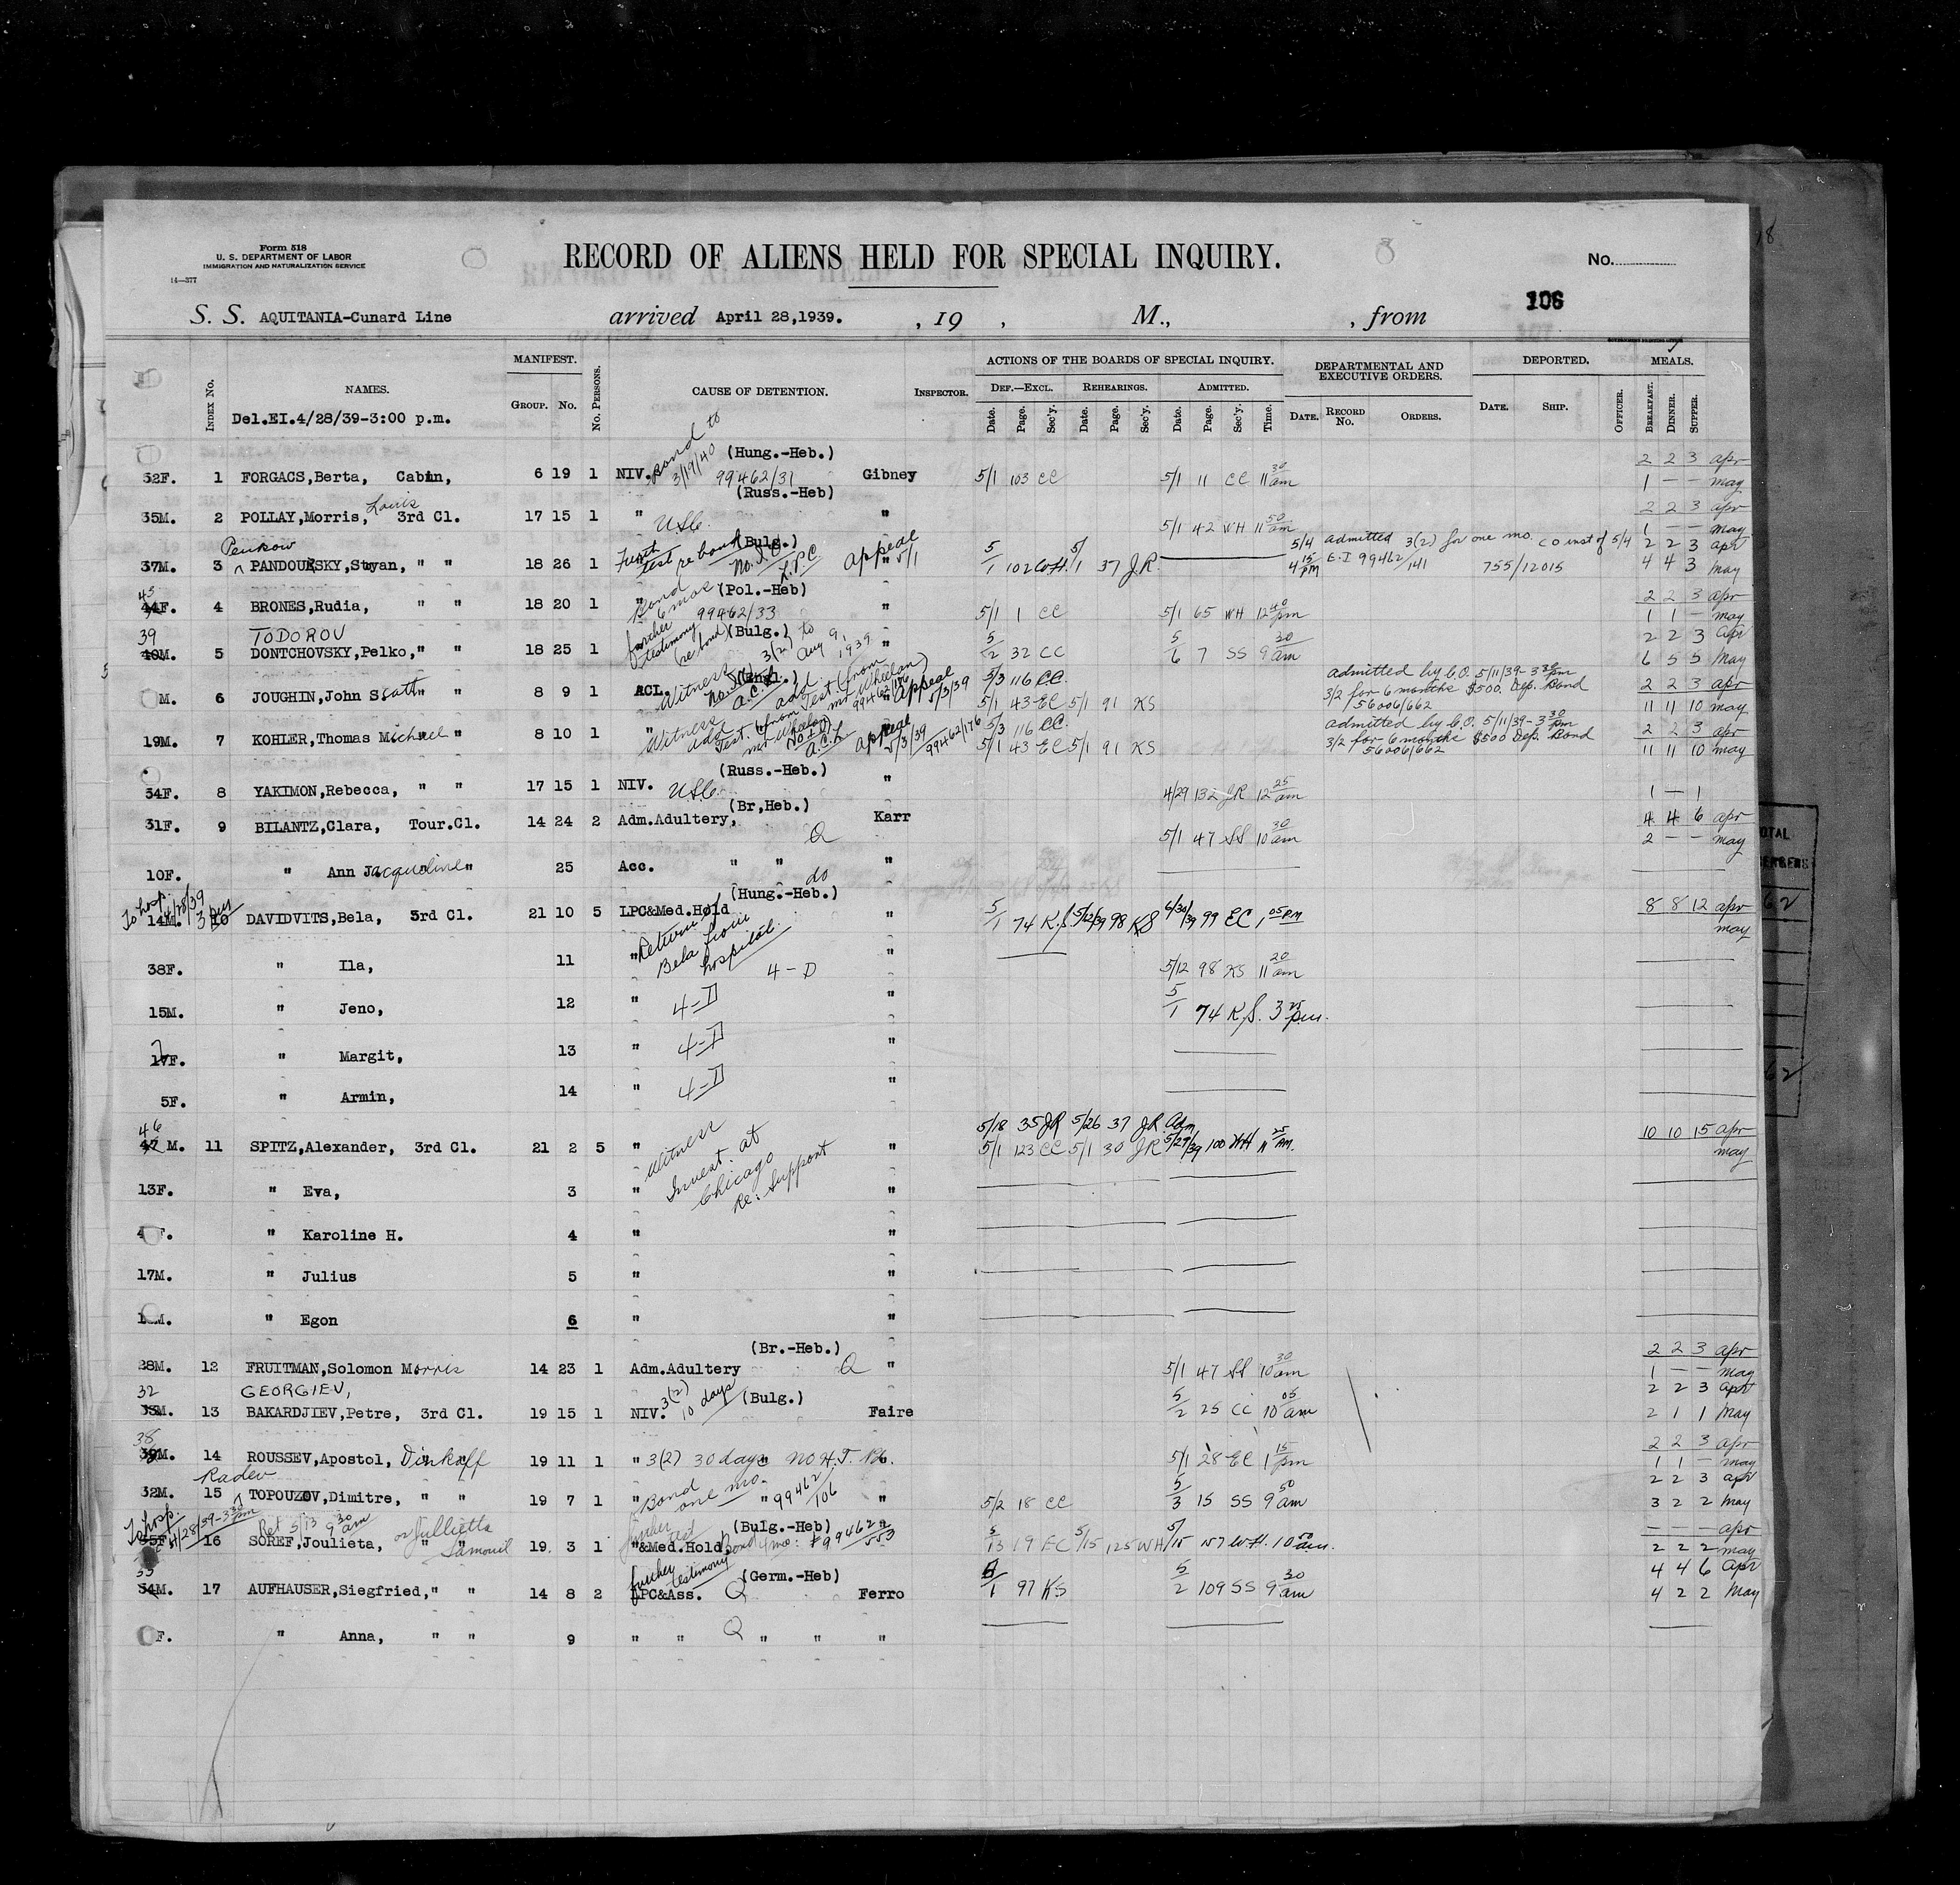 Form 518
U. S. DEPARTMENT OF LABOR
IMMIGRATION AND NATURALIZATION SERVICE
14—377
RECORD OF ALIENS HELD FOR SPECIAL INQUIRY.
No.
106
S. S. AQUITANIA-Cunard Line arrived April 28,1939. , 19 , M., , from
INDEX No. NAMES. MANIFEST. GROUP. No. No. PERSONS. CAUSE OF DETENTION. INSPECTOR. ACTIONS OF THE BOARDS OF SPECIAL INQUIRY. DEPARTMENTAL AND EXECUTIVE ORDERS. DEPORTED. OFFICER. MEALS.
DEF.—EXCL. REHEARINGS. ADMITTED.
Date. Page. Sec'y. Date. Page. Sec'y. Date. Page. Sec'y. Time. DATE. RECORD No. ORDERS. DATE. SHIP. BREAKFAST. DINNER. SUPPER.
Del.EI.4/28/39-3:00 p.m.
(Hung.-Heb.) 2 2 3 apr
52F. 1 FORGACS,Berta, Cabin, 6 19 1 NIV. Bond to 3/19/40 99462/31 Gibney 5/1 103 CC 5/1 11 CC 11 30 am 1 — — may
(Russ.-Heb) 2 2 3 apr
35M. 2 POLLAY,Morris, Louis 3rd Cl. 17 15 1 " USC. " 5/1 42 WH 11 50 am 1 — — may
Penkow (Bulg.) 5/4 admitted 3(2) for one mo. CO inst of 5/4 2 2 3 apr
37M. 3 PANDOURSKY,Stoyan, " " 18 26 1 Furth test re bond No. I. V. L.P.C. Appeal 5/1 5/1 102 W.H. 5/1 37 J.R. 4 15 PM E.I 99462/141 755/12015 4 4 3 may
45 (Pol.-Heb) 2 2 3 apr
44F. 4 BRONES,Rudia, " " 18 20 1 " Bond 6 mos 99462/33 " 5/1 1 CC 5/1 65 WH 12 40 pm 1 1 — may
39 TODOROV (Bulg.) 2 2 3 apr
40M. 5 DONTCHOVSKY,Pelko, " " 18 25 1 further testimony (re bond) 3(2) to Aug 9, 1939 " 5/2 32 CC 5/6 7 SS 9 30 am 6 5 5 May
(Engl.) 5/3 116 CC. admitted by C.O. 5/11/39- 3 30 pm 2 2 3 apr
M. 6 JOUGHIN,John Scott " " 8 9 1 ACL. Witness A.C.L. add. Test. (from mr Wheelan) 99462/176 Appeal 5/3/39 5/1 43 EC 5/1 91 KS 3/2 for 6 months $500. Dep. Bond 56006/662 11 11 10 may
5/3 116 CC. admitted by C.O. 5/11/39- 3 30 pm 2 2 3 apr
19M. 7 KOHLER,Thomas Michael " 8 10 1 " Witness add test. (from mr Wheelan) A.C.L. Appeal 5/3/39 99462/176 5/1 43 EC 5/1 91 KS 3/2 for 6 months $500 Dep. Bond 56006/662 11 11 10 may
(Russ.-Heb.)
34F. 8 YAKIMON,Rebecca, " " 17 15 1 NIV. USC. " 4/29 132 JR 12 25 am 1 — 1
(Br,Heb.) 4 4 6 apr
31F. 9 BILANTZ,Clara, Tour.Cl. 14 24 2 Adm.Adultery, Q Karr 5/1 47 SS 10 30 am 2 — — may
10F. " Ann Jacqueline " 25 Acc. " " do "
To hosp. 4/28/39 (Hung.-Heb.) 8 8 12 apr
14M. 10 DAVIDVITS,Bela, 3rd Cl. 21 10 5 LPC&Med.Hold " 5/1 74 K.S. 5/12/39 98 KS 6/30/39 99 EC 1 05 PM may
38F. " Ila, 11 " Return of Bela from hospital. 4-D " 5/12 98 KS 11 20 am
15M. " Jeno, 12 " 4-D " 5/1 74 K.S. 3 25 pm.
17F. " Margit, 13 " 4-D "
5F. " Armin, 14 " 4-D "
46 5/18 35 JR 5/26 37 J.R. Adm. 10 10 15 apr
47 M. 11 SPITZ,Alexander, 3rd Cl. 21 2 5 " Witness Invest. at Chicago Re: Support " 5/1 123 CC 5/1 30 JR 5/29/39 100 WH 11 25 AM. may
13F. " Eva, 3 " "
F. " Karoline H. 4 " "
17M. " Julius 5 " "
M. " Egon 6 " "
(Br.-Heb.) 2 2 3 apr
28M. 12 FRUITMAN,Solomon Morris 14 23 1 Adm.Adultery Q " 5/1 47 SS 10 30 am 1 — — may
32 GEORGIEV, (Bulg.) 2 2 3 apr
33M. 13 BAKARDJIEV,Petre, 3rd Cl. 19 15 1 NIV. 3(2) 10 days Faire 5/2 25 CC 10 05 am 2 1 1 May
38 2 2 3 apr
39M. 14 ROUSSEV,Apostol, Dinkoff " " 19 11 1 " 3(2) 30 days No H.T. 5/1 28 EC 1 15 pm 1 1 — may
Radev 2 2 3 apr
32M. 15 TOPOUZOV,Dimitre, " " 19 7 1 " Bond one mo. 99462/106 " 5/2 18 CC 5/3 15 SS 9 50 am 3 2 2 May
To hosp. 4/28/39-3 30 pm Ret 5/13 9 30 am or Jullietta Samouil (Bulg.-Heb) — — — apr
35F. 16 SOREF,Joulieta, " " 19. 3 1 "&Med.Hold, further test Bond 99462/553 5/13 19 EC 5/15 125 WH 5/15 157 W.H. 10 50 am. 2 2 2 may
53 (Germ.-Heb) 4 4 6 apr
54M. 17 AUFHAUSER,Siegfried, " " 14 8 2 LPC&Ass. further testimony Q Ferro 5/1 97 KS 5/2 109 SS 9 30 am 4 2 2 May
F. " Anna, " " 9 " " Q " " "